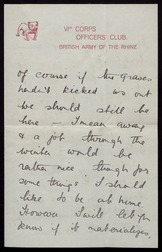 VIth CORPS
OFFICERS' CLUB.
BRITISH ARMY OF THE RHINE
of course if the Graves
hadn't kicked us out
we should still be
here — I mean away
& a job through the
winter would be
rather nice though for
some things I should
like to be at home.
However I will let you
know if it materializes,